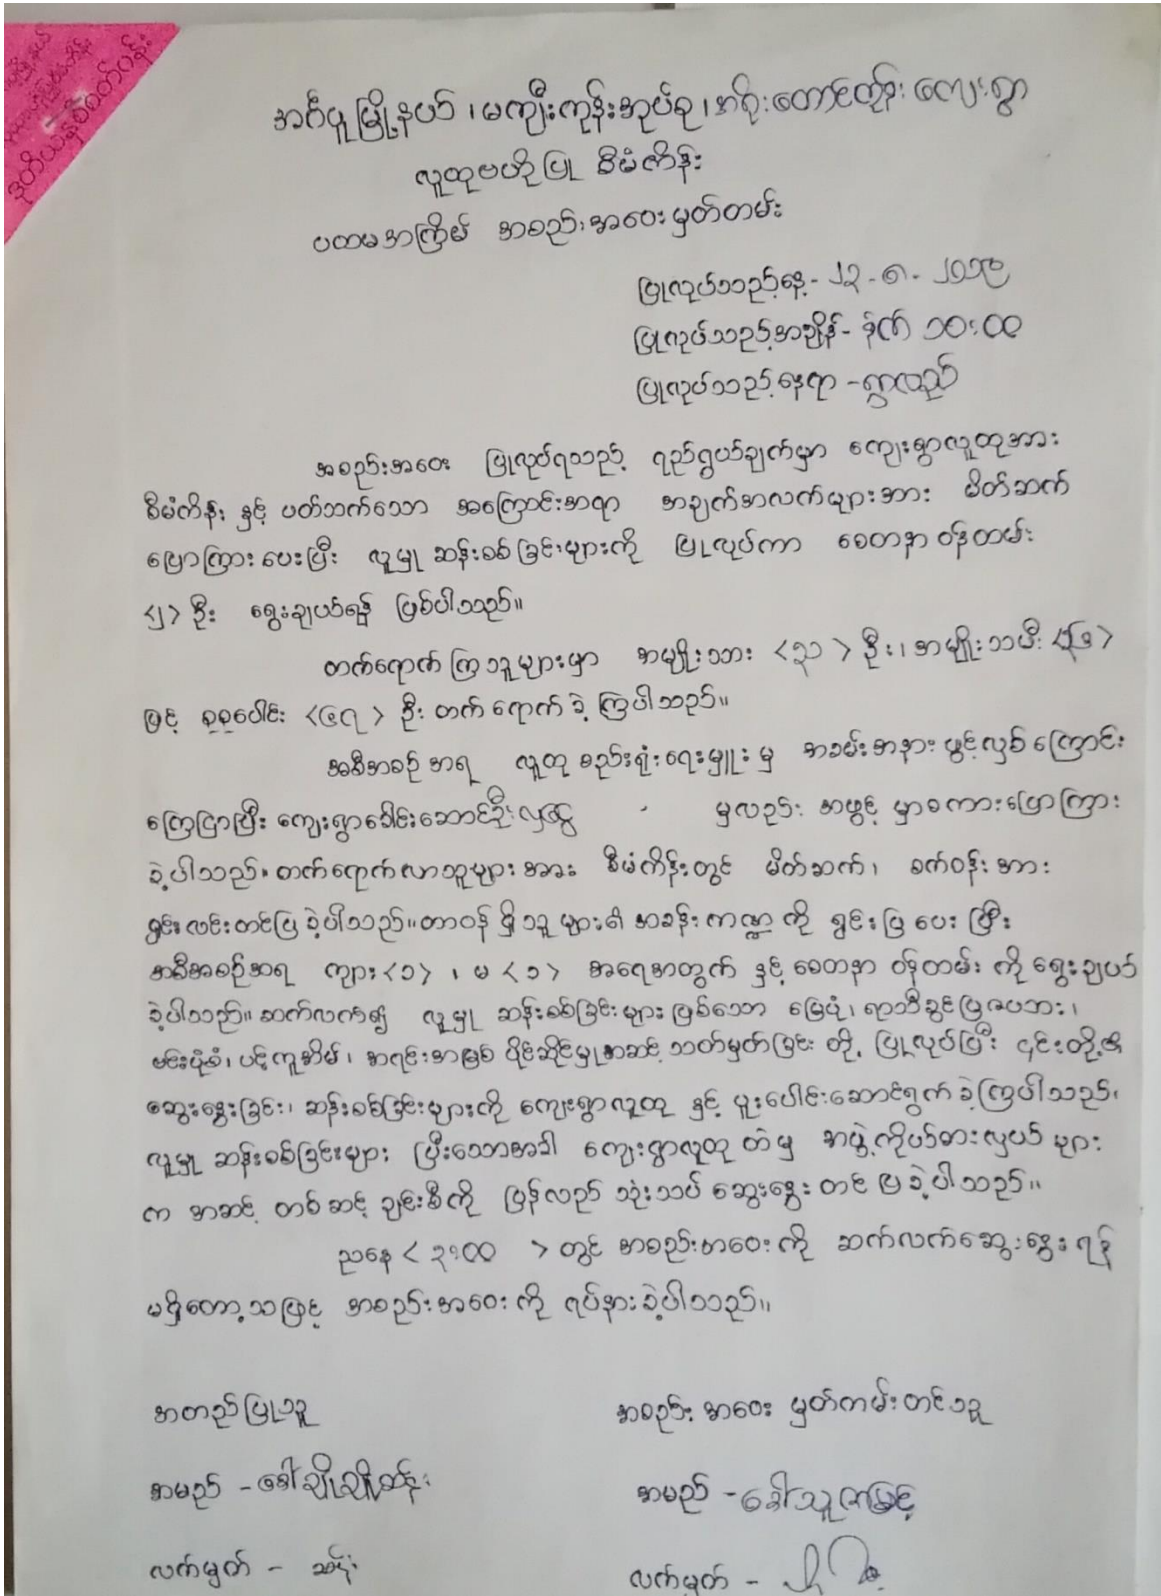 ဒုတိယနှစ်စက်ဝန်း
အင်္ဂပူမြို့နယ်၊ မကျီးကုန်းအုပ်စု၊ အရိုးတောင်တုန်း ကျေးရွာ
လူထုဗဟိုပြု စီမံကိန်း
ပထမအကြိမ် အစည်းအဝေးမှတ်တမ်း
ပြုလုပ်သည့်နေ့ - ၂၃ - ၈ - ၂၀၁၉
ပြုလုပ်သည့်အချိန် - နံနက် ၁၀:၀၀
ပြုလုပ်သည့်နေရာ - ရွာလယ်
အစည်းအဝေး ပြုလုပ်ရသည့် ရည်ရွယ်ချက်မှာ ကျေးရွာလူထုအား
စီမံကိန်း နှင့် ပတ်သက်သော အကြောင်းအရာ အချက်အလက်များအား မိတ်ဆက်
ပြောကြားပေးပြီး လူမှု ဆန်းစစ်ခြင်းများကို ပြုလုပ်ကာ စေတနာ့ဝန်ထမ်း
<၂> ဦး ရွေးချယ်ရန် ဖြစ်ပါသည်။
တက်ရောက်ကြသူများမှာ အမျိုးသား <၃၁> ဦး၊ အမျိုးသမီး
ဖြင့် စုစုပေါင်း <၄၇> ဦး တက်ရောက်ခဲ့ကြပါသည်။
အစီအစဉ်အရ လူထု စည်းရုံးရေးမှူးမှ အခမ်းအနားဖွင့်လှစ်ကြောင်း
ကြေငြာပြီး ကျေးရွာခေါင်းဆောင်ဦးလှငွေ မှလည်း အဖွင့် မှာစကားပြောကြား
ခဲ့ပါသည်။ တက်ရောက်လာသူများအား စီမံကိန်းတွင် မိတ်ဆက်၊ စက်ဝန်းအား
ရှင်းလင်းတင်ပြခဲ့ပါသည်။ တာဝန်ရှိသူများ၏ အခန်းကဏ္ဍကို ရှင်းပြပေးပြီး
အစီအစဉ်အရ ကျား<၁>၊ မ<၁> အရေအတွက် နှင့် စေတနာ့ ဝန်ထမ်းကို ရွေးချယ်
ခဲ့ပါသည်။ ဆက်လက်၍ လူမှု ဆန်းစစ်ခြင်းများဖြစ်သော မြေပုံ၊ ရာသီခွင်ပြဇယား၊
ဗင်းပုံစံ၊ ပင့်ကူအိမ်၊ အရင်းအမြစ် ပိုင်ဆိုင်မှုအဆင့် သတ်မှတ်ခြင်း တို့ ပြုလုပ်ပြီး ၎င်းတို့၏
ဆွေးနွေးခြင်း၊ ဆန်းစစ်ခြင်းများကို ကျေးရွာလူထု နှင့် ပူးပေါင်းဆောင်ရွက်ခဲ့ကြပါသည်၊
လူမှု ဆန်းစစ်ခြင်းများ ပြီးသောအခါ ကျေးရွာလူထုထဲမှ အဖွဲ့ကိုယ်စားလှယ် များ
က အဆင့် တစ်ဆင့် ချင်းစီကို ပြန်လည် သုံးသပ် ဆွေးနွေး တင်ပြခဲ့ပါသည်။
ညနေ < ၃:၀၀ > တွင် အစည်းအဝေးကို ဆက်လက်ဆွေးနွေးရန်
မရှိတော့သဖြင့် အစည်းအဝေးကို ရုပ်နားခဲ့ပါသည်။
အတည်ပြုသူ အစည်းအဝေး မှတ်တမ်းတင်သူ
အမည် - ဒေါ်ချိုချိုဆန်း အမည် - ဒေါ်သူဇာမြင့်
လက်မှတ် - လက်မှတ် -